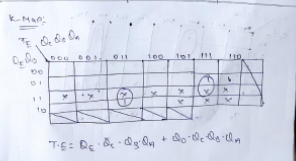 K-Map:
T_E Q_C Q_B Q_A
Q_E Q_D 000 001 011 100 101 111 110
00
01 1
11 x x x x x x x
10 x x
T·E = Q_E · Q_C · Q_B · Q_A + Q_D · Q_C · Q_B · Q_A